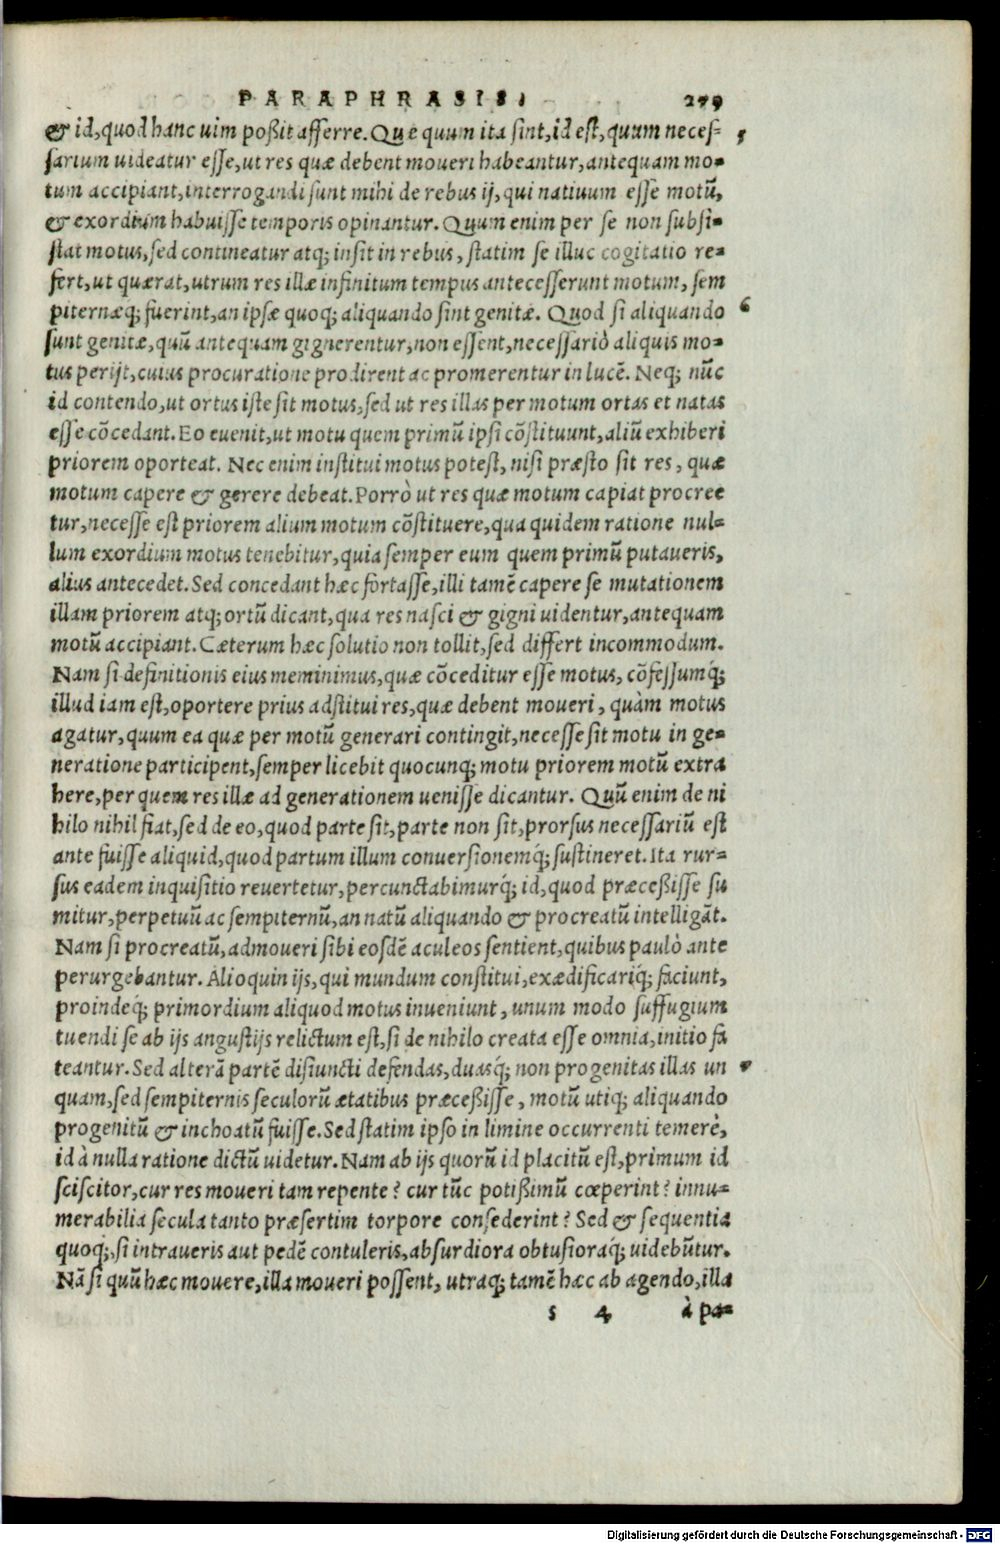 PARAPHRASIS, 279
& id,quod hanc uim poßit afferre.Que quum ita sint,id est,quum neces- 5
sarium uideatur esse,ut res quæ debent moueri habeantur,antequam mo-
tum accipiant,interrogandi sunt mihi de rebus ij, qui natiuum esse motū,
& exordium habuisse temporis opinantur. Quum enim per se non subsi-
stat motus,sed contineatur atq; insit in rebus, statim se illuc cogitatio re-
fert,ut quærat,utrum res illæ infinitum tempus antecesserunt motum, sem
piternæq; fuerint,an ipsæ quoq; aliquando sint genitæ. Quod si aliquando 6
sunt genitæ,quū antequam gignerentur,non essent,necessariò aliquis mo-
tus perijt,cuius procuratione prodirent ac promerentur in lucē. Neq; nūc
id contendo,ut ortus iste sit motus,sed ut res illas per motum ortas et natas
esse cōcedant. Eo euenit,ut motu quem primū ipsi cōstituunt,aliū exhiberi
priorem oporteat. Nec enim institui motus potest, nisi præsto sit res, quæ
motum capere & gerere debeat. Porrò ut res quæ motum capiat procree
tur,necesse est priorem alium motum cōstituere,qua quidem ratione nul-
lum exordium motus tenebitur,quia semper eum quem primū putaueris,
alius antecedet. Sed concedant hæc fortasse,illi tamē capere se mutationem
illam priorem atq; ortū dicant,qua res nasci & gigni uidentur,antequam
motū accipiant. Cæterum hæc solutio non tollit,sed differt incommodum.
Nam si definitionis eius meminimus,quæ cōceditur esse motus, cōfessumq́;
illud iam est,oportere prius adstitui res,quæ debent moueri, quàm motus
agatur,quum ea quæ per motū generari contingit,necesse sit motu in ge-
neratione participent,semper licebit quocunq; motu priorem motū extra
here,per quem res illæ ad generationem uenisse dicantur. Quū enim de ni
hilo nihil fiat,sed de eo,quod parte sit,parte non sit,prorsus necessariū est
ante fuisse aliquid,quod partum illum conuersionemq́; sustineret. Ita rur-
sus eadem inquisitio reuertetur,percunctabimurq́; id,quod præceßisse su
mitur,perpetuū ac sempiternū,an natū aliquando & procreatū intelligāt.
Nam si procreatū,admoueri sibi eosdē aculeos sentient,quibus paulò ante
perurgebantur. Alioquin ijs, qui mundum constitui,exædificariq́; faciunt,
proindeq́; primordium aliquod motus inueniunt, unum modo suffugium
tuendi se ab ijs angustijs relictum est,si de nihilo creata esse omnia,initio fa
teantur. Sed alterā partē disiuncti defendas,duasq́; non progenitas illas un 7
quam,sed sempiternis seculorū ætatibus præceßisse, motū utiq; aliquando
progenitū & inchoatū fuisse. Sed statim ipso in limine occurrenti temerè,
id à nulla ratione dictū uidetur. Nam ab ijs quorū id placitū est,primum id
sciscitor,cur res moueri tam repente? cur tūc potißimū cœperint? innu-
merabilia secula tanto præsertim torpore consederint? Sed & sequentia
quoq;, si intraueris aut pedē contuleris,absurdiora obtusioraq́; uidebūtur.
Nā si quū hæc mouere,illa moueri possent, utraq; tamē hæc ab agendo,illa
s 4 à pa-
Digitalisierung gefördert durch die Deutsche Forschungsgemeinschaft - DFG